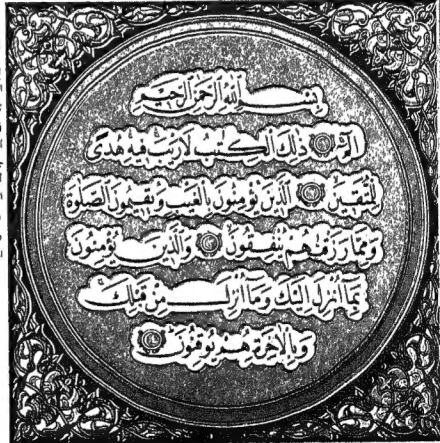 بسم الله الرحمن الرحيم
الم ۝ ذلك الكتب لا ريب فيه هدى
للمتقين ۝ الذين يؤمنون بالغيب ويقيمون الصلوة
ومما رزقنهم ينفقون ۝ والذين يؤمنون
بما أنزل إليك وما أنزل من قبلك
وبالآخرة هم يوقنون ۝